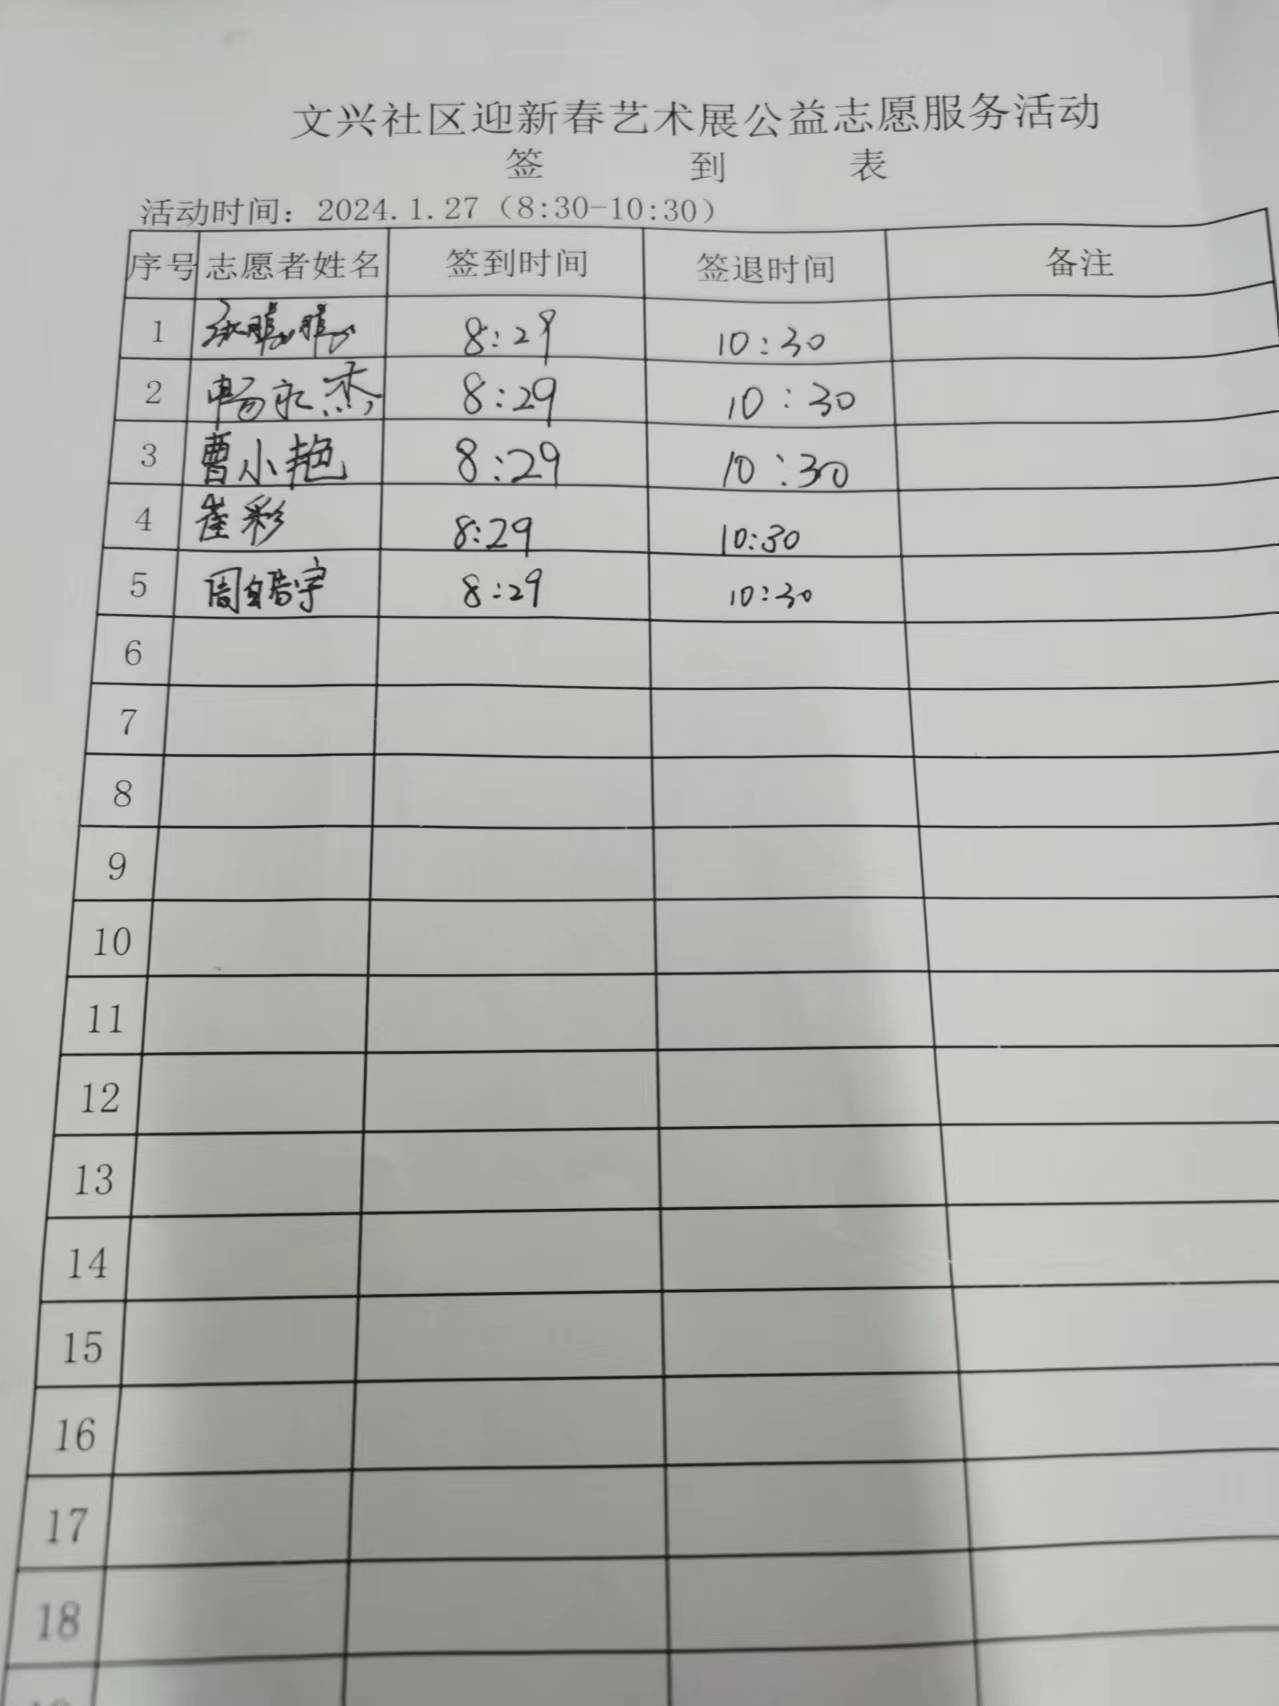 文兴社区迎新春艺术展公益志愿服务活动
签 到 表
活动时间：2024.1.27（8:30-10:30）
序号 志愿者姓名 签到时间 签退时间 备注
1 8:29 10:30
2 畅永杰 8:29 10:30
3 曹小艳 8:29 10:30
4 崔彩 8:29 10:30
5 周 宇 8:29 10:30
6
7
8
9
10
11
12
13
14
15
16
17
18